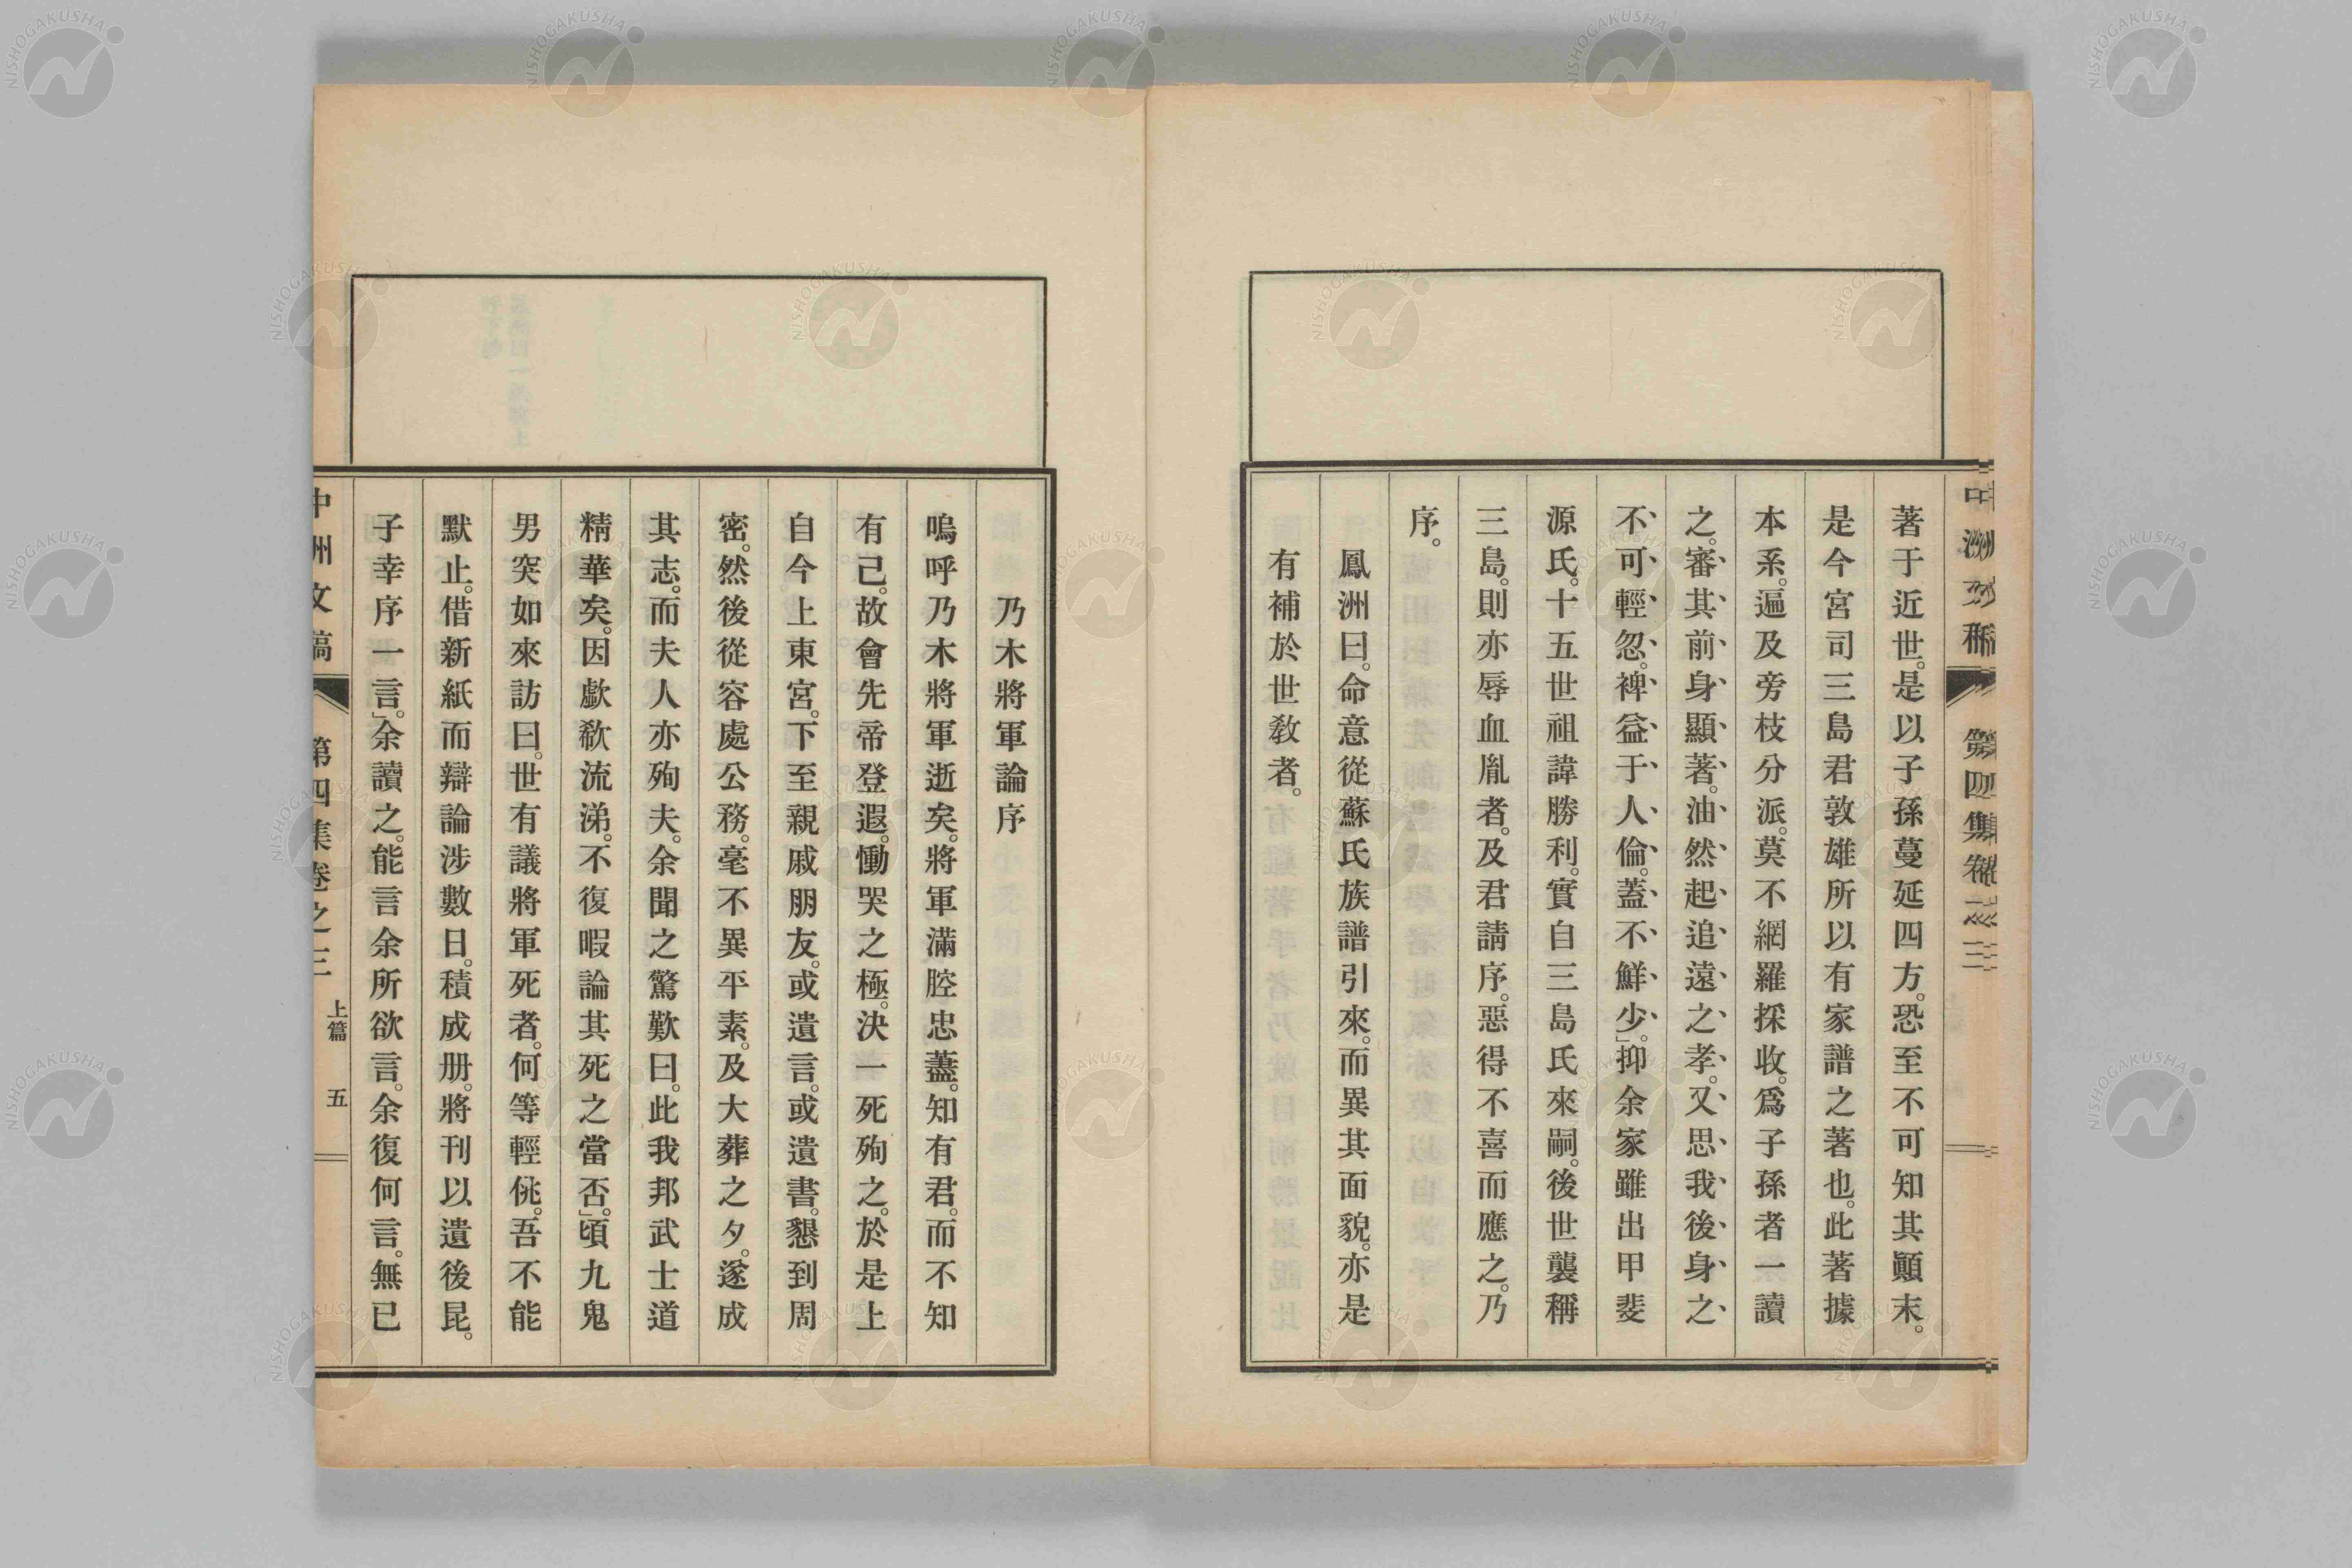 著于近世。是以子孫蔓延四方。恐至不可知其顚末。
是今宮司三島君敦雄所以有家譜之著也。此著據
本系。遍及旁枝分派。莫不網羅採收。爲子孫者一讀
之。審其前身顯著。油然起追遠之孝。又思我後身之
不可輕忽。裨益于人倫。蓋不鮮少。」抑余家雖出甲斐
源氏。十五世祖諱勝利。實自三島氏來嗣。後世襲稱
三島。則亦辱血胤者。及君請序。惡得不喜而應之。乃
序。
鳳洲曰。命意從蘇氏族譜引來。而異其面貌。亦是
有補於世敎者。
乃木將軍論序
嗚呼乃木將軍逝矣。將軍滿腔忠藎。知有君。而不知
有己。故會先帝登遐。慟哭之極。決一死殉之。於是上
自今上東宮。下至親戚朋友。或遺言。或遺書。懇到周
密。然後從容處公務。毫不異平素。及大葬之夕。遂成
其志。而夫人亦殉夫。余聞之驚歎曰。此我邦武士道
精華矣。因歔欷流涕。不復暇論其死之當否。」頃九鬼
男突如來訪曰。世有議將軍死者。何等輕佻。吾不能
默止。借新紙而辯論涉數日。積成册。將刊以遺後昆。
子幸序一言。」余讀之。能言余所欲言。余復何言。無已
中洲文稿 第四集卷之三 上篇 五